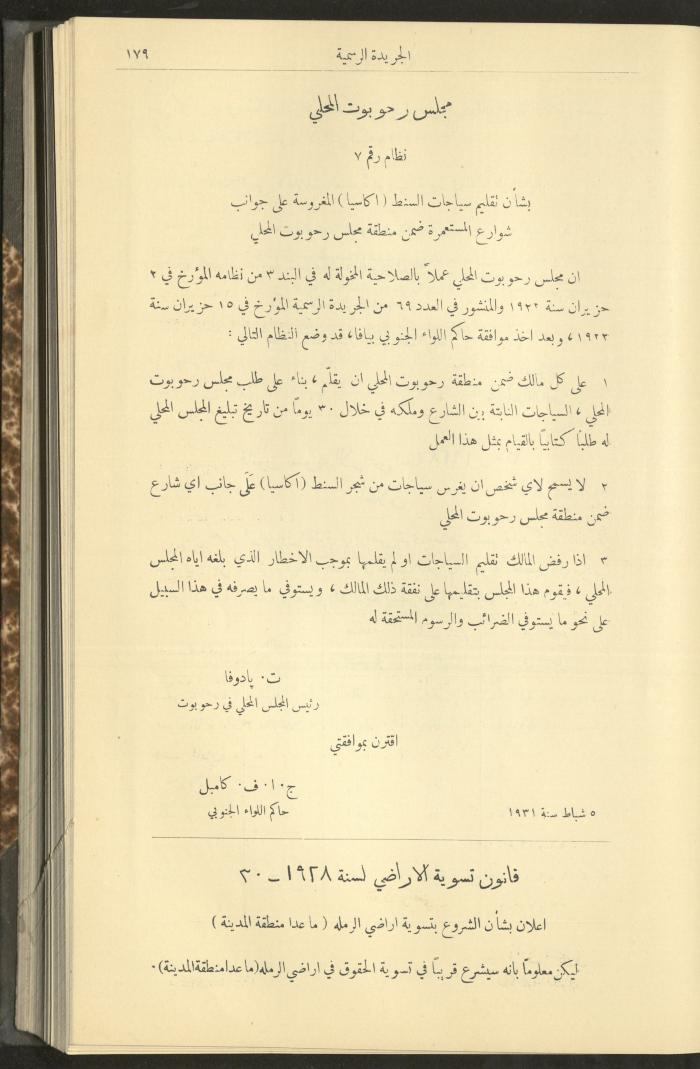 الجريدة الرسمية
١٧٩
مجلس رحوبوت المحلي
نظام رقم ٧
بشأن تقليم سياجات السنط (اكاسيا) المغروسة على جوانب
شوارع المستعمرة ضمن منطقة مجلس رحوبوت المحلي
ان مجلس رحوبوت المحلي عملاً بالصلاحية المخولة له في البند ٣ من نظامه المؤرخ في ٢
حزيران سنة ١٩٢٢ والمنشور في العدد ٦٩ من الجريدة الرسمية المؤرخ في ١٥ حزيران سنة
١٩٢٢، وبعد اخذ موافقة حاكم اللواء الجنوبي بيافا، قد وضع النظام التالي :
١ على كل مالك ضمن منطقة رحوبوت المحلي ان يقلّم، بناء على طلب مجلس رحوبوت
المحلي، السياجات النابتة بين الشارع وملكه في خلال ٣٠ يومًا من تاريخ تبليغ المجلس المحلي
له طلبًا كتابيًا بالقيام بمثل هذا العمل
٢ لا يسمح لاي شخص ان يغرس سياجات من شجر السنط (اكاسيا) عَلَى جانب اي شارع
ضمن منطقة مجلس رحوبوت المحلي
٣ اذا رفض المالك تقليم السياجات او لم يقلمها بموجب الاخطار الذي بلغه اياه المجلس
المحلي، فيقوم هذا المجلس بتقليمها على نفقة ذلك المالك، ويستوفي ما يصرفه في هذا السبيل
على نحو ما يستوفي الضرائب والرسوم المستحقة له
ت. پادوفا
رئيس المجلس المحلي في رحوبوت
اقترن بموافقتي
ج. ا. ف. كامبل
حاكم اللواء الجنوبي
٥ شباط سنة ١٩٣١
قانون تسوية الاراضي لسنة ١٩٢٨ـ٣٠
اعلان بشأن الشروع بتسوية اراضي الرمله (ما عدا منطقة المدينة)
ليكن معلومًا بانه سيشرع قريبًا في تسوية الحقوق في اراضي الرمله (ما عدا منطقة المدينة).